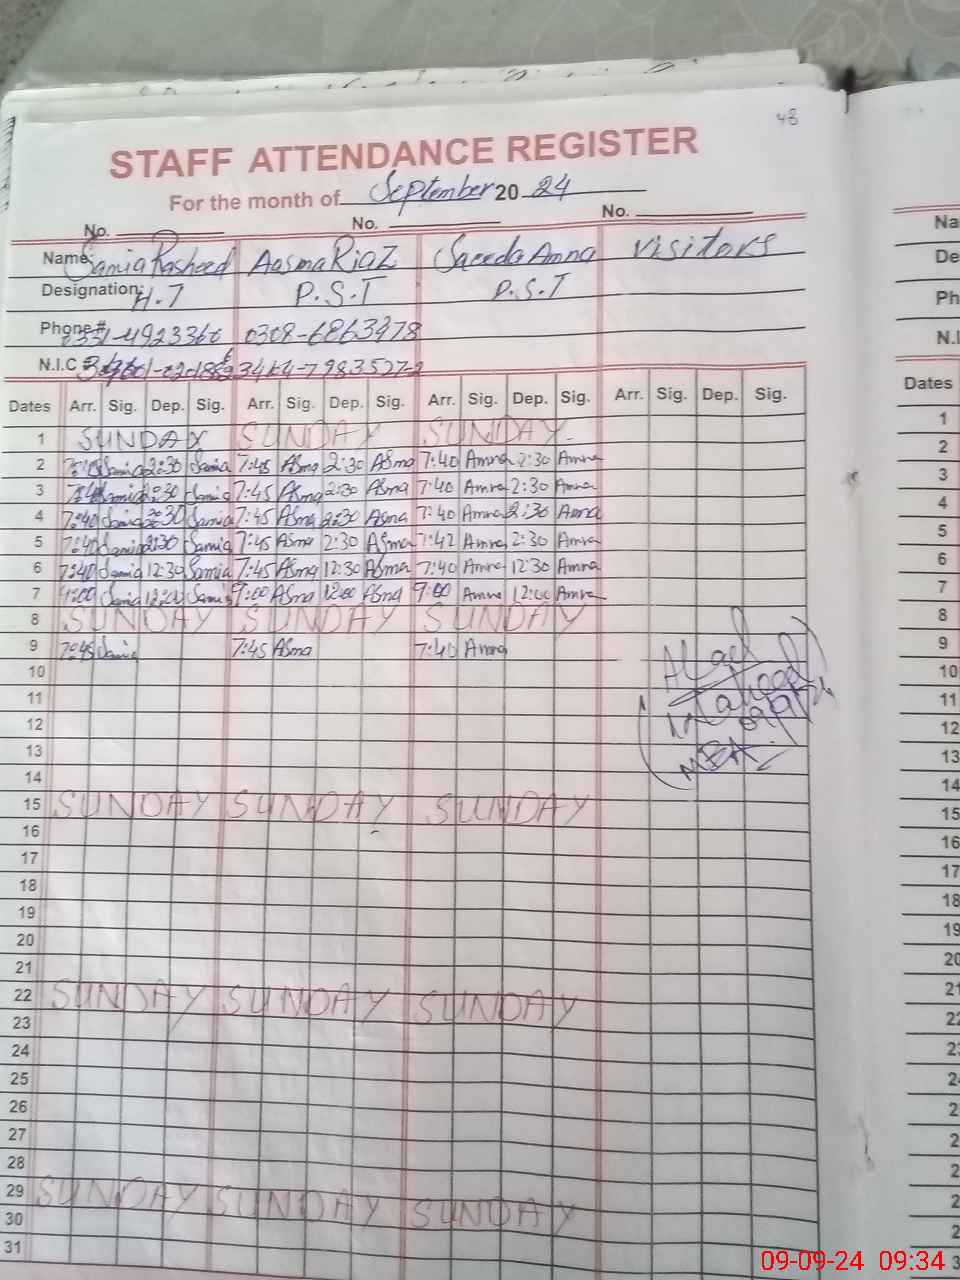 48
STAFF ATTENDANCE REGISTER
For the month of September 2024
No. No. No.
Name: Samia Rasheed Aasma Riaz Saeeda Amna Visitors
Designation: H.T P.S.T P.S.T
Phone# 0331-4923360 0308-6863478
N.I.C #
Dates Arr. Sig. Dep. Sig. Arr. Sig. Dep. Sig. Arr. Sig. Dep. Sig. Arr. Sig. Dep. Sig.
1 SUNDAY SUNDAY SUNDAY
2 Samia 2:30 Samia 7:45 Asma 2:30 Asma 7:40 Amna 2:30 Amna
3 Samia 2:30 Samia 7:45 Asma 2:30 Asma 7:40 Amna 2:30 Amna
4 7:40 Samia 2:30 Samia 7:45 Asma 2:30 Asma 7:40 Amna 2:30 Amna
5 7:40 Samia 2:30 Samia 7:45 Asma 2:30 Asma 7:42 Amna 2:30 Amna
6 7:40 Samia 12:30 Samia 7:45 Asma 12:30 Asma 7:40 Amna 12:30 Amna
7 9:00 Samia 12:00 Samia 9:00 Asma 12:00 Asma 9:00 Amna 12:00 Amna
8 SUNDAY SUNDAY SUNDAY
9 7:45 Samia 7:45 Asma 7:40 Amna
10
11
12
MEA
13
14
15 SUNDAY SUNDAY SUNDAY
16
17
18
19
20
21
22 SUNDAY SUNDAY SUNDAY
23
24
25
26
27
28
29 SUNDAY SUNDAY SUNDAY
30
31
Na
De
Ph
N.I
Dates
1
2
3
4
5
6
7
8
9
10
11
12
13
14
15
16
17
18
19
20
21
22
23
09-09-24 09:34